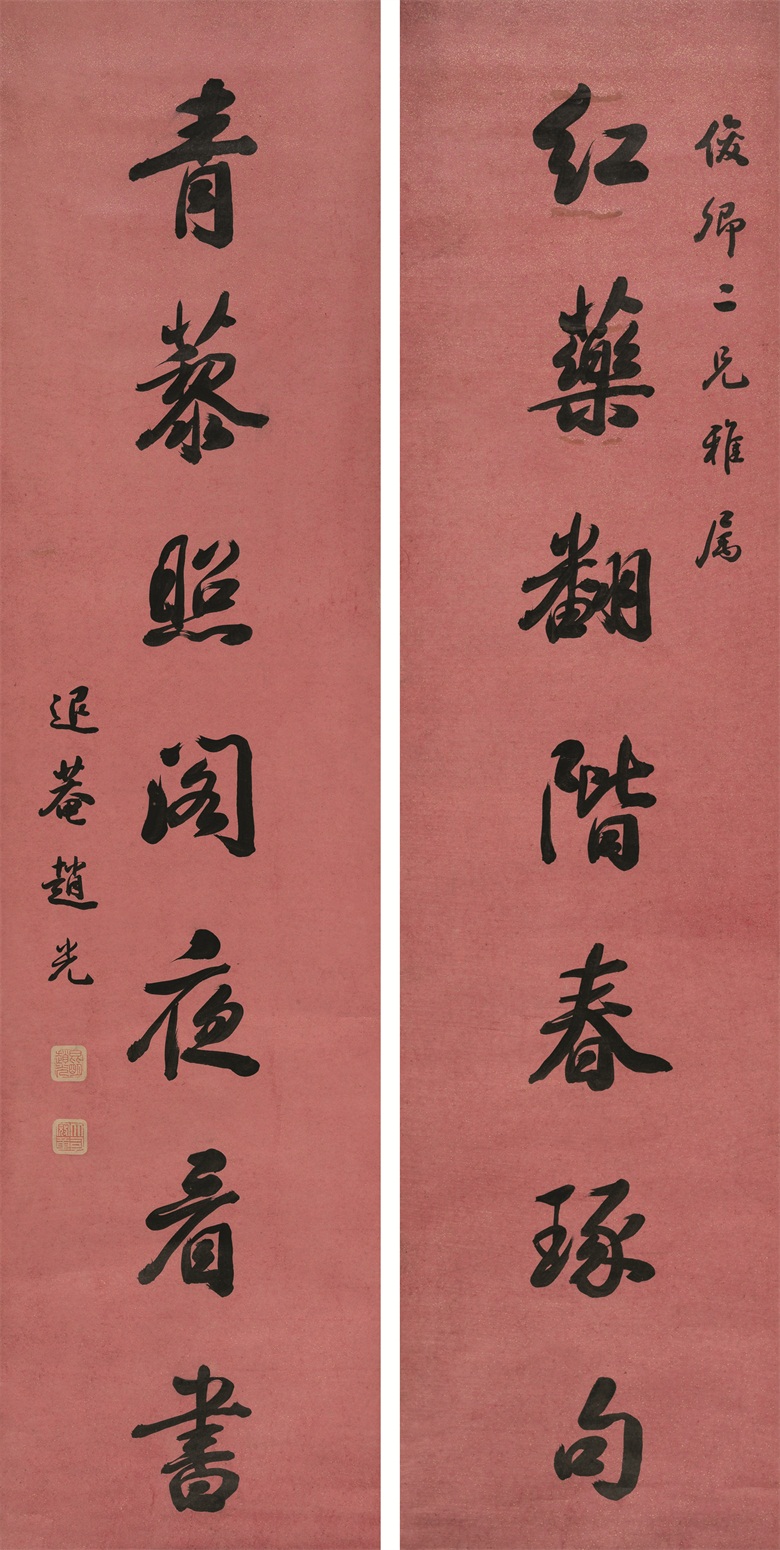 俊卿二兄雅属
红藥翻階春琢句
青藜照阁夜看書
退菴趙光